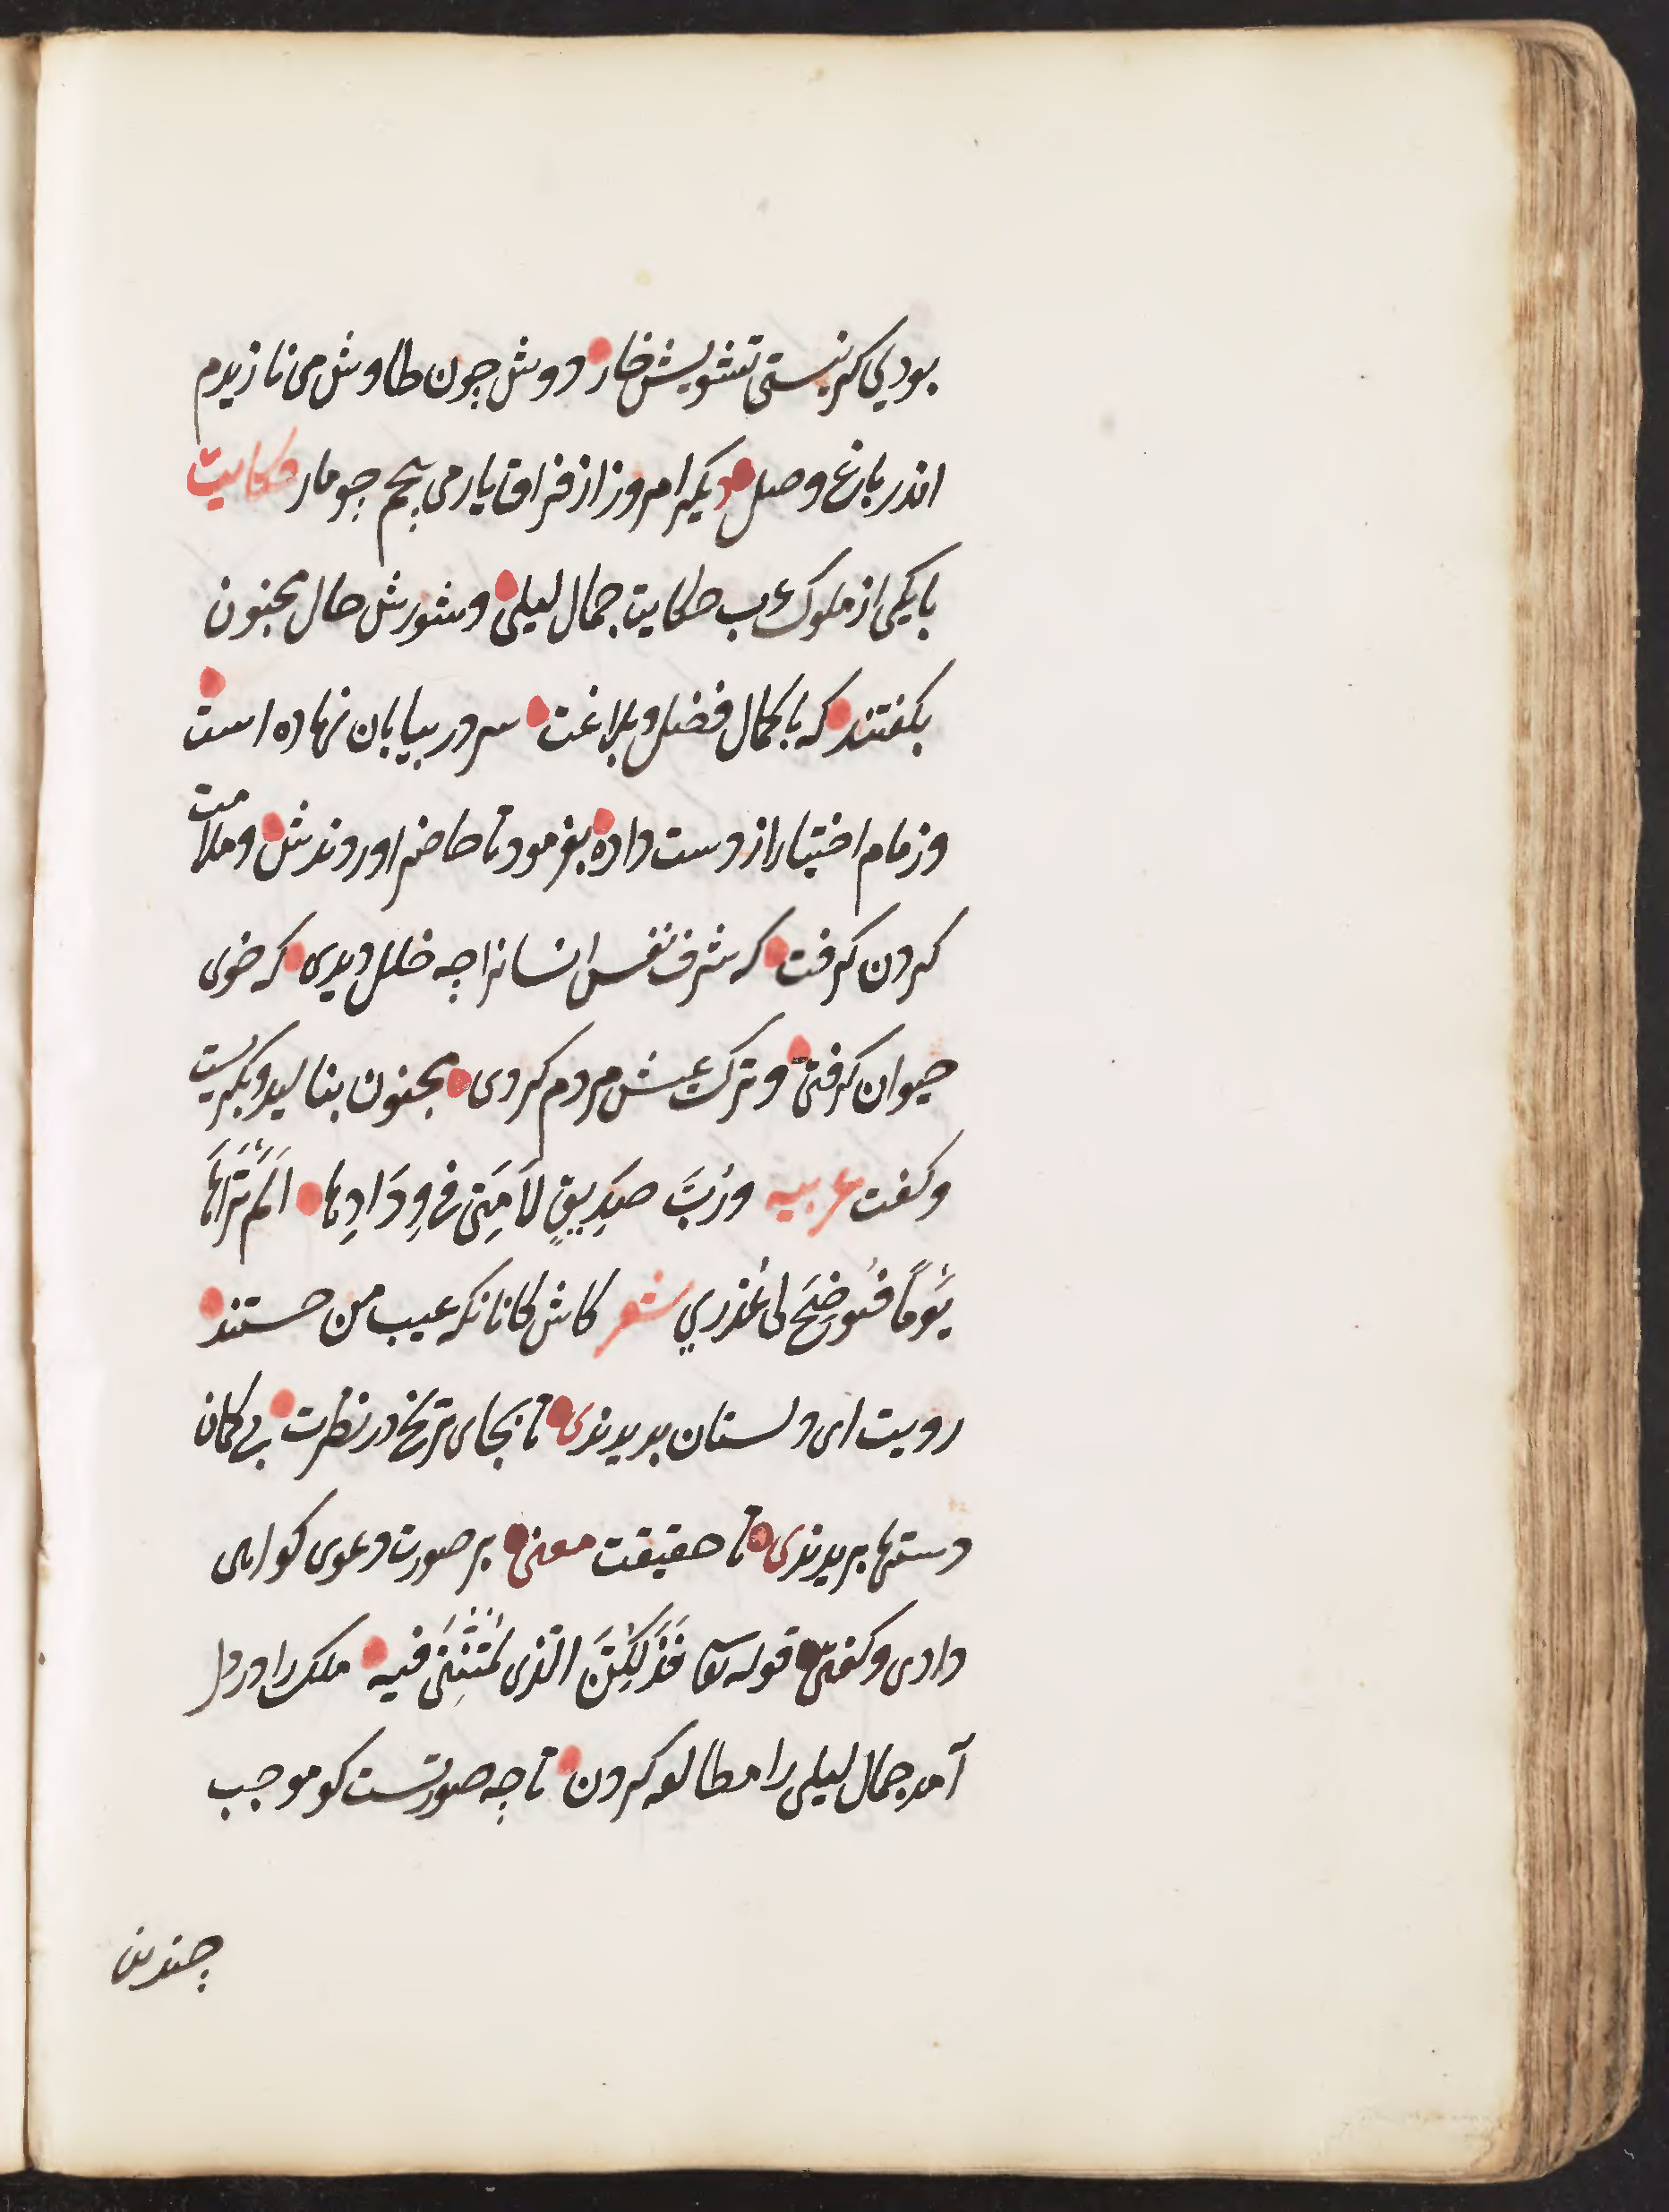 بودی کر نیستی تشویش خار دوش چون طاوش می نازیدم
اندر باغ وصل دیکر امروز از فراق یار می پیچم چو مار حکایت
با یکی از ملوک عرب حکایت جمال لیلی وشورش حال مجنون
بکفتند که با کمال فضل و بلاغت سر در بیابان نهاده است
وزمام اختیار از دست داده بفرمود تا حاضر اوردندش وملامت
کردن کرفت که شرف نفس انسانرا چه خلل دیدی که خوی
حیوان کرفتی وترک عیش مردم کردی مجنون بنالید وبکریست
وکفت عربیه وَرُبَّ صَدِیقٍ لَامَنِی فِی وِدَادِهَا اَلَمْ تَرَاهَا
یَوْمًا فَیُوضِحَ لی عُذْرِي شعر کاش کانانکه عیب من جستند
رویت ای دلستان بدیدندی تا بجای ترنج در نظرت بی کمان
دستها بریدندی تا حقیقت معنی بر صورت دعوی کواهی
دادی وکفتی قوله تعا فَذَلِکُنَّ الَّذِی لُمْتُنَّنِی فیه ملک را در دل
آمد جمال لیلی را مطالعه کردن تا چه صورتست کو موجب
چندین